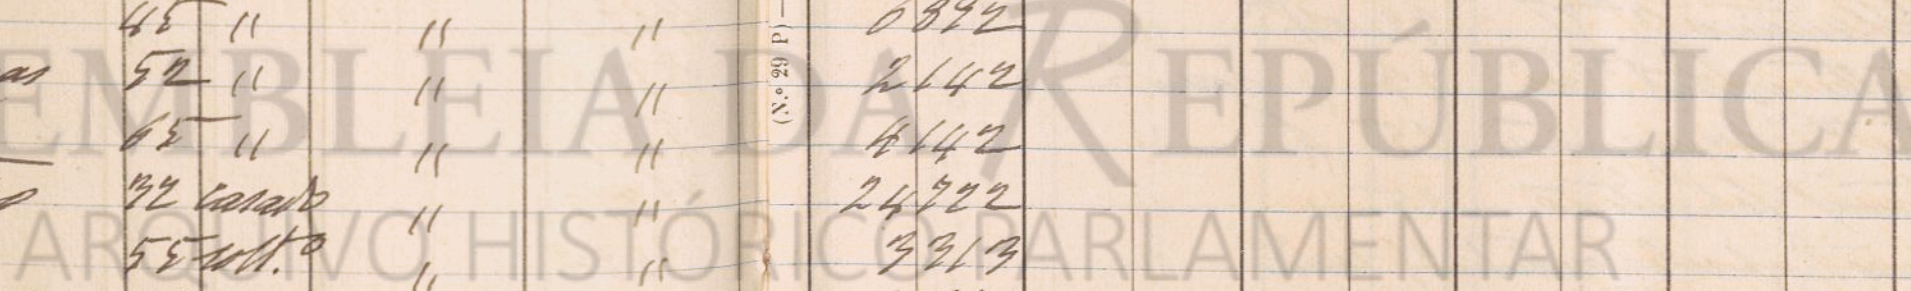 45 " " " 6892
as 52 " " " 2142
65 " " " 4142
32 casado " " 24722
55 solt.º " " 3313
(N.º 29 P)
EMBLEIA DA REPÚBLICA
ARQUIVO HISTÓRICO PARLAMENTAR